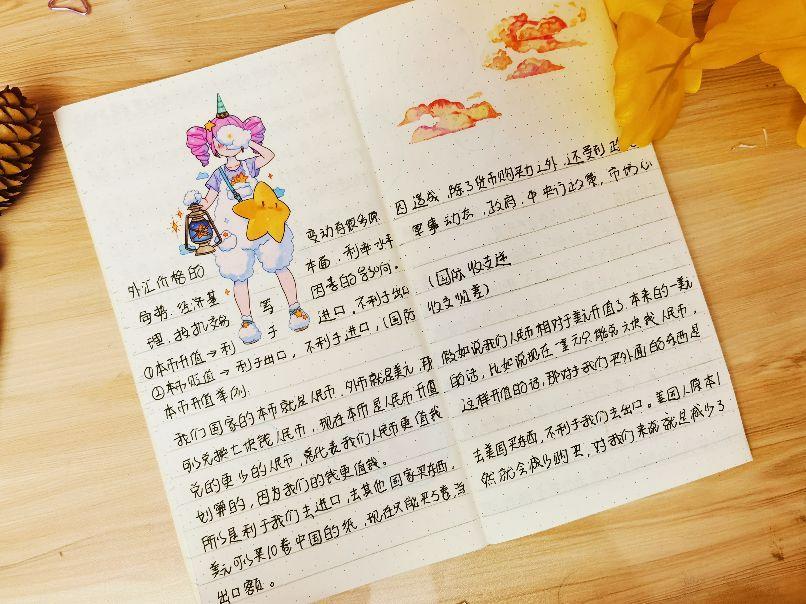 外汇价格的变动有很多原因造成,除了货币购买力之外,还受到政
局势、经济基本面、利率水平、军事动态,政府、中央行政策,市场心
理、投机交易等因素的影响。
①本币升值→利于进口,不利于出口(国际收支逆
②本币贬值→利于出口,不利于进口,(国际收支顺差)
本币升值举例:
我们国家的本币就是人民币,外币就是美元,那假如说我们人民币相对于美元升值了,本来的一美元
可以兑换七块钱人民币,现在本币是人民币升值的话,比如说现在一美元只能兑六块钱人民币,
兑的更少的人民币,就代表我们人民币更值钱这样升值的话,那对于我们买外面的东西是
划算的,因为我们的钱更值钱。
所以是利于我们去进口,去其他国家买东西,去美国买东西,不利于我们去出口。美国人原本1
美元可以买10卷中国的纸,现在只能买5卷,当然就会减少购买,对我们来说就是减少了
出口额。